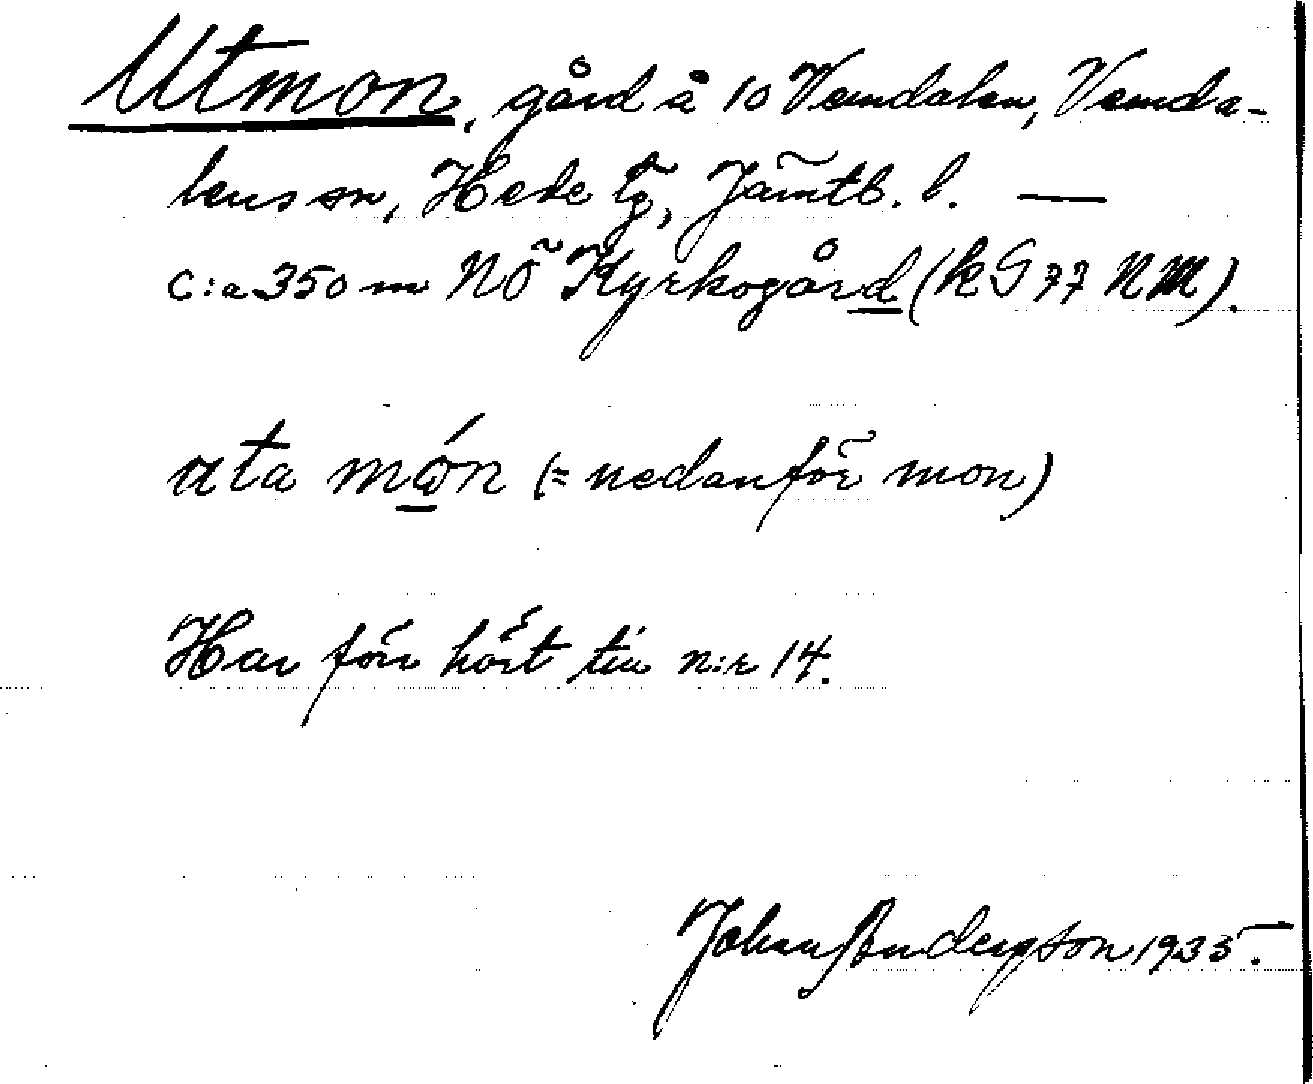 Utmon, gård å 10 Vemdalen, Vemda-
lens sn, Hede tg, Jämtl. l. —
c:a 350 m NÖ Kyrkogård (kG 77 NM).
uta món (= nedanför mon)
Har förr hört till n:r 14.
Johan Anderson 1935.